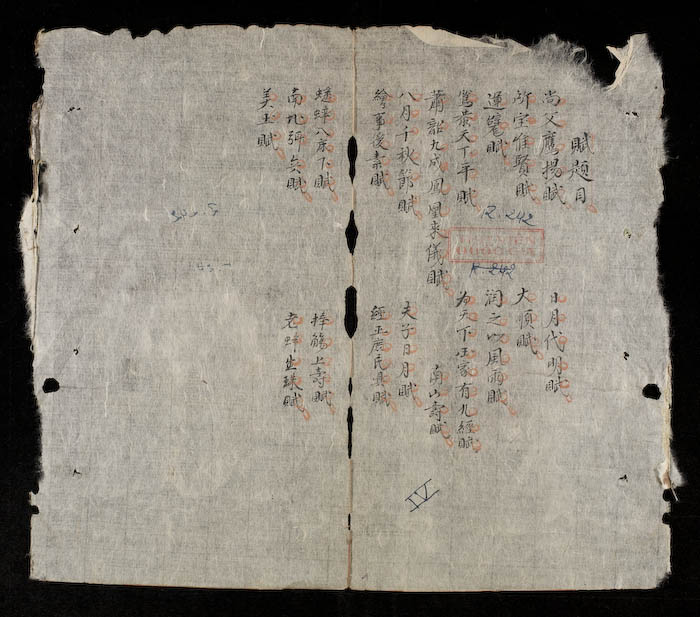 賦題目
尚父鷹揚賦 日月代明賦
所宝惟賢賦 大順賦
運甓賦 潤之以風雨賦
篤恭天下平賦 為天下国家有九經賦
蕭韶九成鳳凰來儀賦 南山壽賦
八月千秋節賦 夫子日月賦
繪事後素賦 經正庶民興賦
蟋蟀入床下賦 捧觴上壽賦
南北弭兵賦 老蚌生珠賦
美玉賦
R.242
R.242
IV